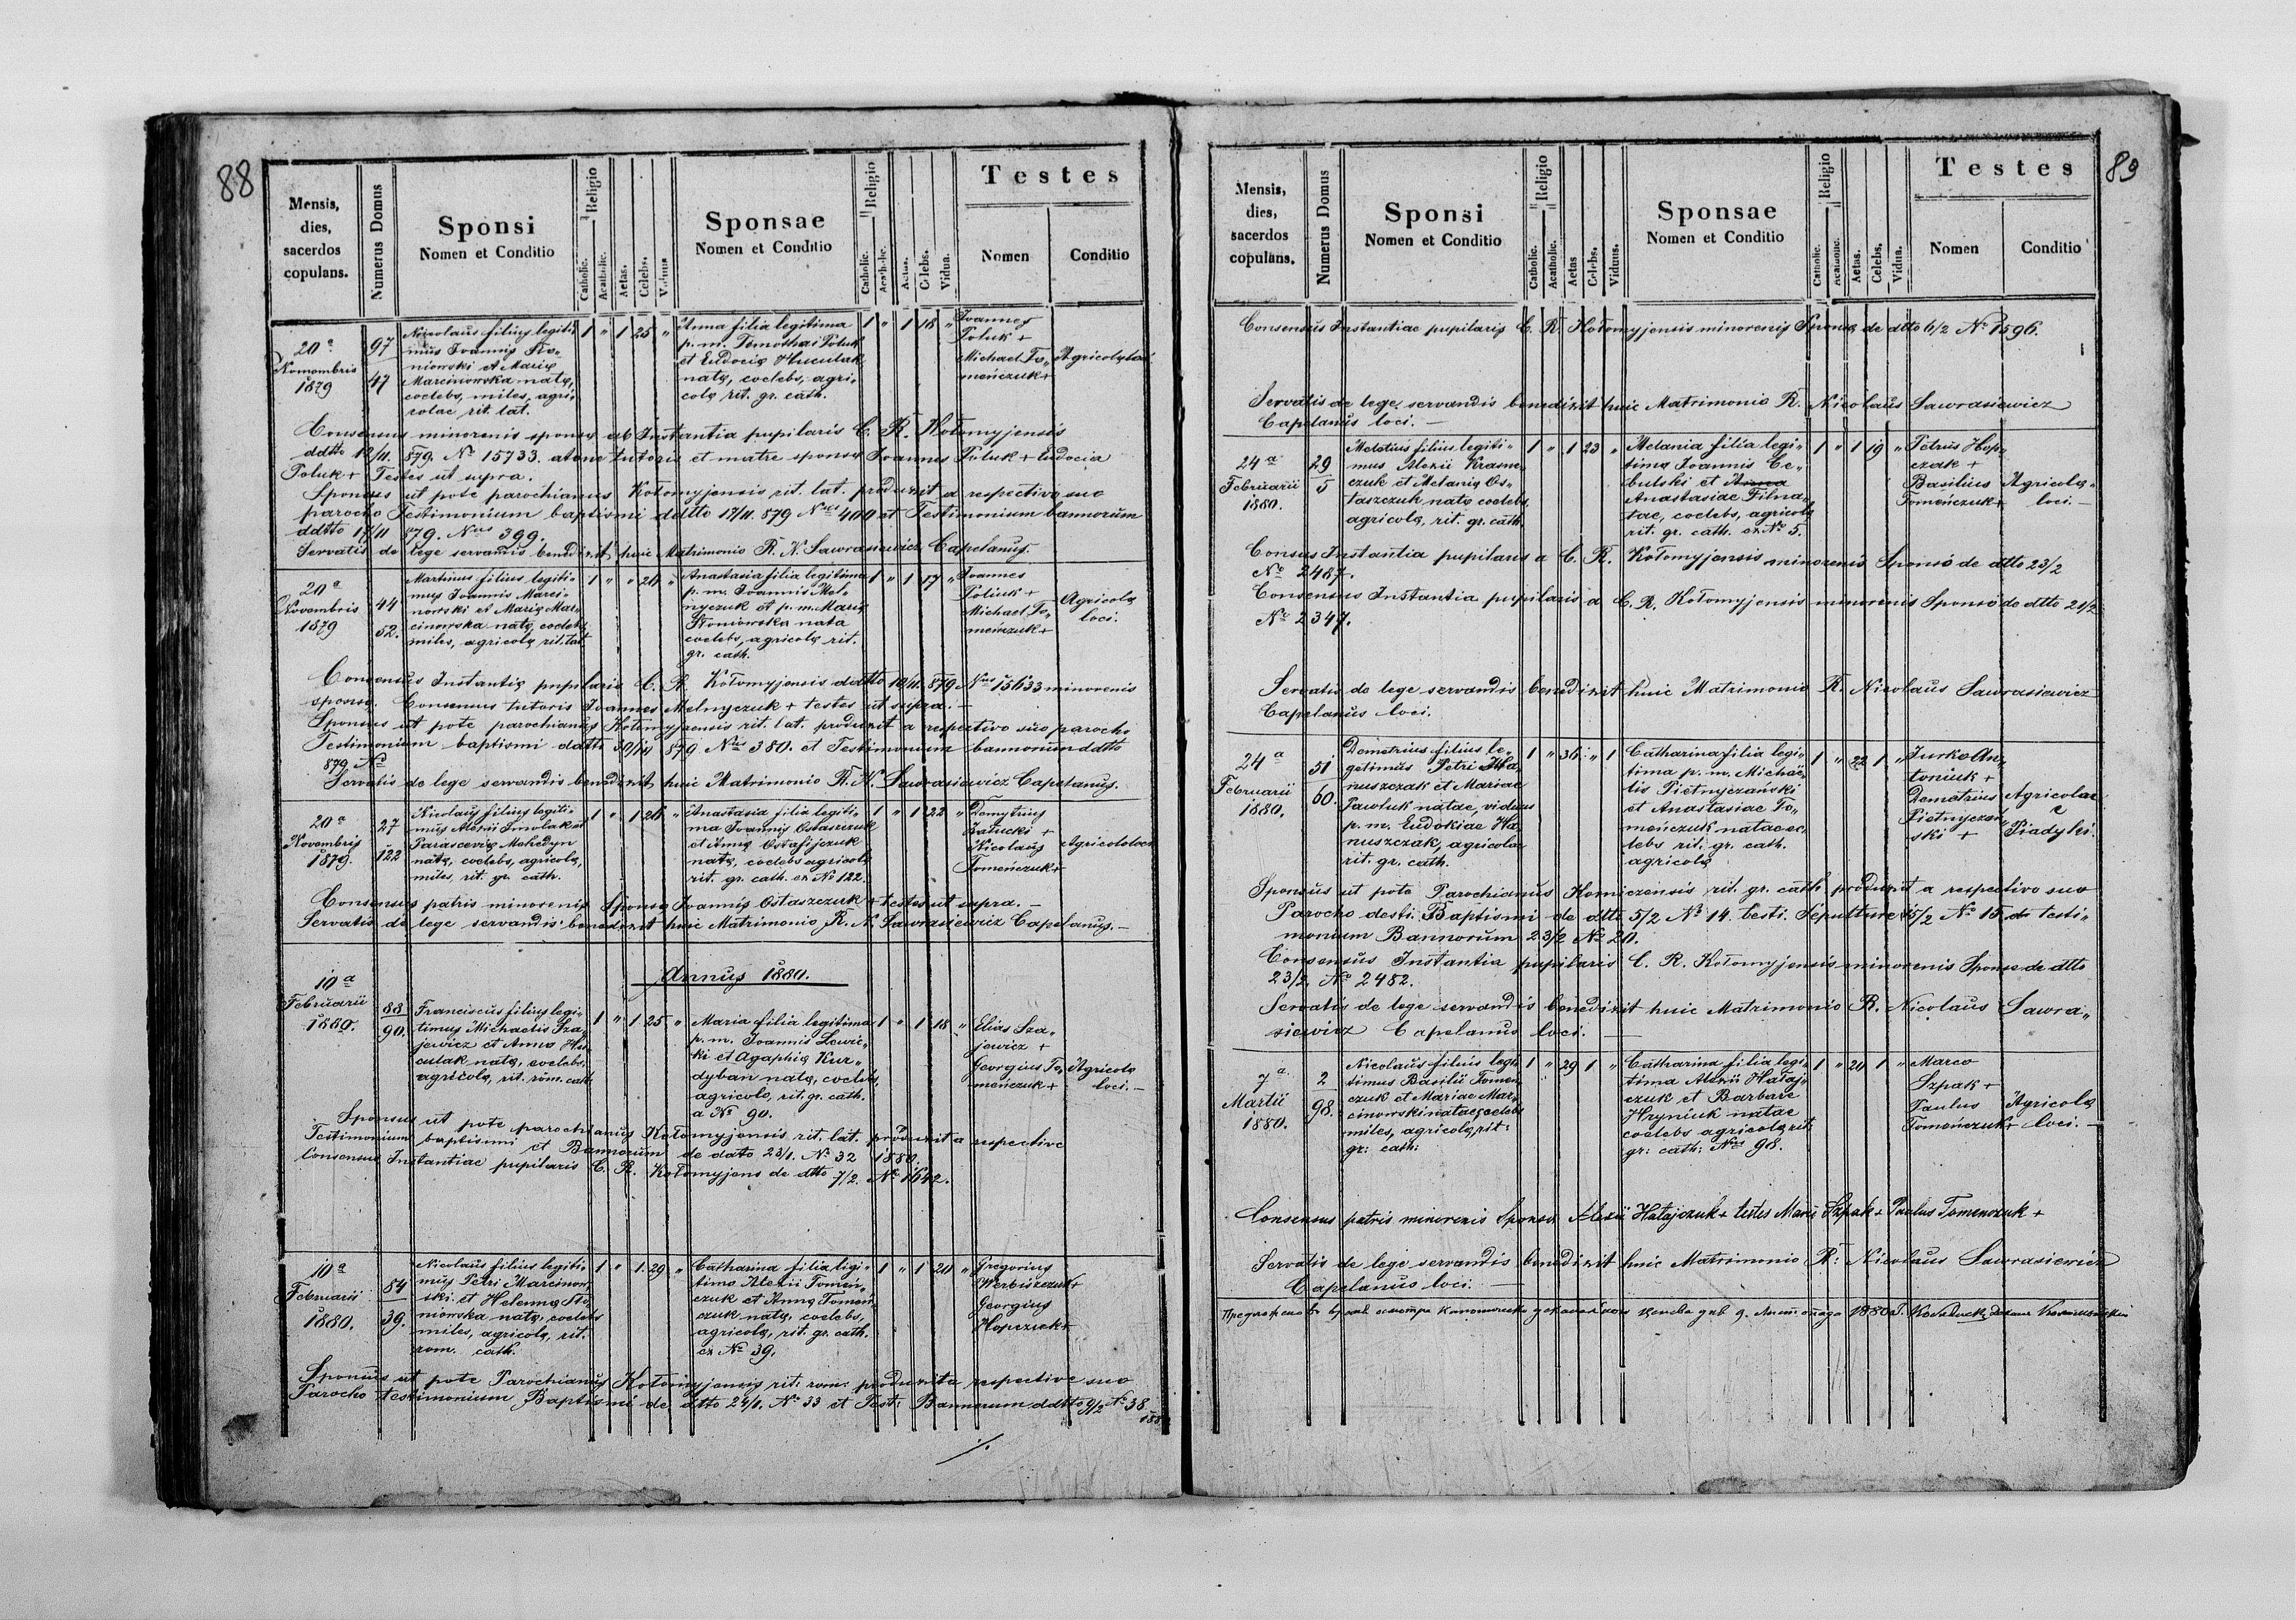 88
Mensis, dies, sacerdos copulans.
Numerus Domus
Sponsi
Nomen et Conditio
Religio
Catholic.
Acatholic.
Aetas.
Celebs.
Viduus
Sponsae
Nomen et Conditio
Religio
Catholic.
Acatholic.
Aetas.
Celebs.
Vidua.
Testes
Nomen
Conditio
20ª
Novembris
1879
97
47
Nicolaus filius legiti-
mus Joannis Sto-
niowski et Marię
Marcinowska natę,
coelebs, miles, agri-
colae rit. lat.
1 " 1 25 "
Anna filia legitima
p. m. Timothai Poluk
et Eudocię Huculak
natę, coelebs, agri-
colę rit. gr. cath.
1 " 1 18 "
Joannes
Poluk +
Michael To-
meńczuk +
Agricolę loci
Consensus minorenis sponsę ab Instantia pupilaris C. R. Kołomyjensis
ddtto 12/11. 879. Nº 15733. atone tutoris et matre sponsę Joannes Poluk + Eudocia
Poluk + Testes ut supra.
Sponsus ut pote parochianus Kołomyjensis rit. lat. produxit a respectivo suo
parocho Testimonium baptismi ddtto 17/11. 879 Nus 400 et Testimonium bannorum
ddtto 17/11 879. Nus 399.
Servatis de lege servandis benedixit huic Matrimonio R. N. Sawrasiewicz Capelanus.
20ª
Novembris
1879
44
52.
Martinus filius legiti-
mus Joannis Marci-
nowski et Marię Mar-
cinowska natę, coelebs
miles, agricolę rit. lat
1 " " 24 "
Anastasia filia legitima
p. m. Joannis Mel-
nyczuk et p. m. Marię
Stoniowska nata
coelebs, agricolę rit.
gr. cath.
1 " 1 17 "
Joannes
Poliuk +
Michael To-
meńczuk +
Agricolę
loci.
Consensus Instantię pupilaris C. R. Kołomyjensis ddtto 10/11. 879. Nus 15633 minorenis
sponsę. Consensus tutoris Joannes Melnyczuk + testes ut supra. —
Sponsus ut pote parochianus Kołomyjensis rit. lat. produxit a respectivo suo parocho
Testimonium baptismi ddtto 30/10 879 Nus 380. et Testimonium bannorum ddtto
879 Nº
Servatis de lege servandis benedixit huic Matrimonio R. N. Sawrasiewicz Capelanus.
20ª
Novembris
1879.
27
122
Nicolaus filius legiti-
mus Alexii Smolak et
Parascevię Mohedyn
natę, coelebs, agricolę,
miles, rit. gr. cath.
1 " 1 26 "
Anastasia filia legiti-
ma Joannis Ostaszczuk
et Annę Ostafijczuk
natę, coelebs agricolę
rit. gr. cath. ex Nº 122.
1 " 1 22 "
Demytrius
Załucki +
Nicolaus
Tomeńczuk +
Agricolę loci
Consensus patris minorenis sponsę Joannis Ostaszczuk + testes ut supra. —
Servatis de lege servandis benedixit huic Matrimonio R. N. Sawrasiewicz Capelanus. —
Annus 1880.
10ª
Februarii
1880.
88
90.
Franciscus filius legi-
timus Michaelis Sza-
jewicz et Anna Hu-
culak natę, coelebs,
agricolę, rit. rom. cath
1 " 1 25 "
Maria filia legitima
p. m. Joannis Lewic-
ki et Agaphię Kur-
dyban natę, coelebs,
agricolę, rit. gr. cath.
a Nº 90.
1 " 1 18 "
Elias Sza-
jewicz +
Georgius To-
meńczuk +
Agricolę
loci. —
Sponsus ut pote parochianus Kołomyjensis rit. lat. produxit a respective
Testimonium baptismi et Bannorum de dato 23/1. Nº 32 1880.
Consensus Instantiae pupilaris C. R. Kołomyjens de dtto 7/2. Nº 1642.
10ª
Februarii
1880.
84
39.
Nicolaus filius legiti-
mus Petri Marcinow-
ski et Helenę Sto-
niowska natę, coelebs
miles, agricolę, rit.
rom. cath.
1 " 1. 29 "
Catharina filia ligi-
tima Alexii Tomeń-
czuk et Annę Tomeń-
czuk natę, coelebs,
agricolę, rit. gr. cath.
ex Nº 39.
1 " 1 20 "
Gregorius
Werbiszczuk +
Georgius
Hopczuk +
Sponsus ut pote Parochianus Kołomyjensis rit. rom. produxit a respective suo
Parocho testimonium Baptismi de dtto 24/1. Nº 33 et Test: Bannorum ddtto 9/2 Nº 38
188
./.
89
Mensis, dies, sacerdos copulans.
Numerus Domus
Sponsi
Nomen et Conditio
Religio
Catholic.
Acatholic.
Aetas
Celebs.
Viduus.
Sponsae
Nomen et Conditio
Religio
Catholic.
Acatholic.
Aetas.
Celebs.
Vidua.
Testes
Nomen
Conditio
Consensus Instantiae pupilaris C. R. Kołomyjensis minorenis Sponsę de dtto 6/2 Nº 1596.
Servatis de lege servandis benedixit huic Matrimonio R. Nicolaus Sawrasiewicz
Capelanus loci. —
24ª
Februarii
1880.
29
5
Melotius filius legiti-
mus Alexii Krasne-
czuk et Melanię Os-
taszczuk natę coelebs,
agricolę, rit. gr. cath.
1 " 1 23 "
Melania filia legi-
tima Joannis Ce-
bulski et Anna
Anastasiae Filna-
tae, coelebs, agricolę
rit. gr. cath. ex Nº 5.
1 " 1 19 "
Petrus Hop-
czak +
Basilius
Tomeńczuk +
Agricolę
loci. —
Consus Instantia pupilaris a C. R. Kołomyjensis minorenis Sponsó de dtto 23/2
Nº 2487.
Consensus Instantia pupilaris a C. R. Kołomyjensis minorenis Sponsó de dtto 21/2
Nº 2347.
Servatis de lege servandis benedixit huic Matrimonio R. Nicolaus Sawrasiewicz
Capelanus loci.
24ª
Februarii
1880.
51
60.
Demetrius filius le-
getimus Petri Ha-
nuszczak et Mariae
Pawluk natae, viduus
p. m. Eudokiae Ha-
nuszczak, agricolae
rit. gr. cath.
1 " 36 " 1
Catharina filia legi-
tima p. m. Michae-
lis Pietnyczański
et Anastasiae To-
meńczuk natae coe-
lebs rit. gr. cath.
agricolę
1 " 22 1 "
Jurko An-
toniuk +
Demetrius
Pietnyczań-
ski +
Agricolae
Piadyki.
Sponsus ut pote Parochianus Kamiczensis rit. gr. cath. produxit a respectivo suo
Parocho desti. Baptismi de dtto 5/2 Nº 14. testi. Sepulturę 15/2 Nº 15. do testi-
monium Bannorum 23/2 Nº 20.
Consensus Instantia pupilaris C. R. Kołomyjensis minorenis Sponse de dtto
23/2. Nº 2452.
Servatis de lege servandis benedixit huic Matrimonio R. Nicolaus Sawra-
siewicz Capelanus loci. —
7ª
Martii
1880.
2
98.
Nicolaus filius legi-
timus Basilii Tomeń-
czuk et Mariae Mar-
cinowski natae coelebs
miles, agricolę, rit:
gr: cath:
1 " 29 1 "
Catharina filia legi-
tima Alexii Hałaj-
czuk et Barbarę
Hryniuk natae
coelebs agricolę rit:
gr: cath: Nus 98.
1 " 20 1 "
Marco
Szpak +
Paulus
Tomeńczuk +
Agricolę
loci. —
Consensus patris minorenis Sponsa Alexii Hałajczuk + testes Marci Szpak + Paulus Tomenczuk +
Servatis de lege servandis benedixit huic Matrimonio R: Nicolaus Sawrasiewicz
Capelanus loci. —
1880